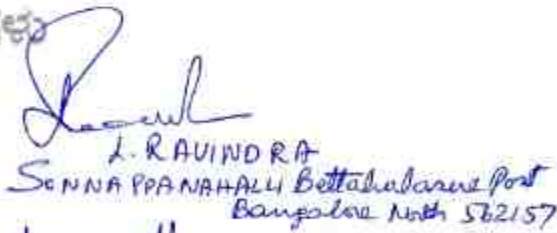 L. RAVINDRA
SONNAPPANAHALLI Bettahalasura Post
Bangalore North 562157